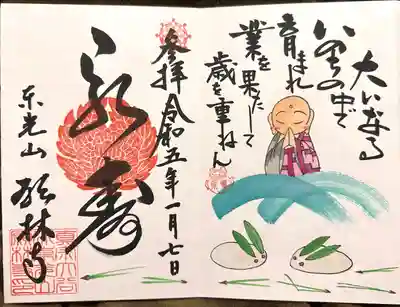 大いなる
いのちの中で
育まれ
業を果たして
歳を重ねん
参拝 令和五年一月七日
寿
東光山 林寺